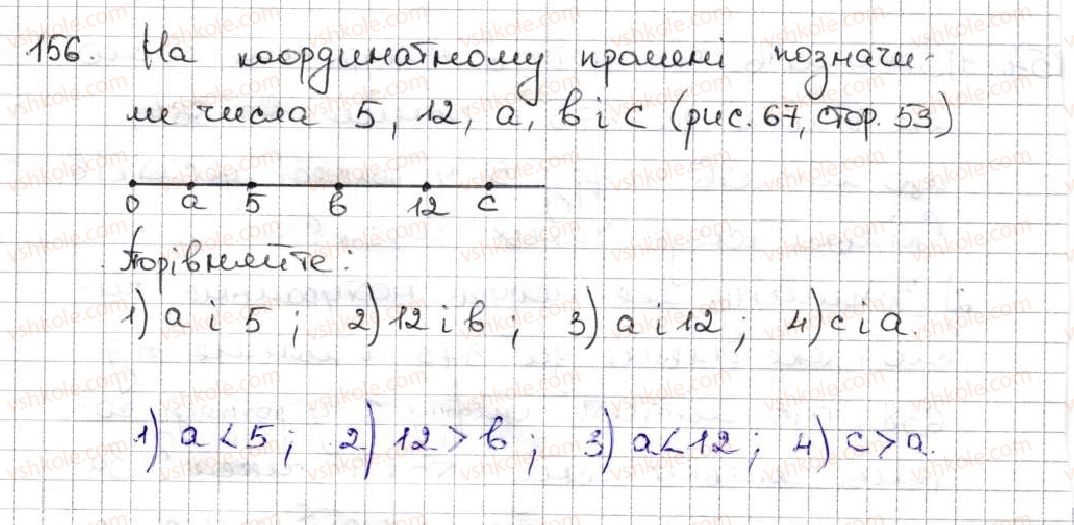 156. На координатному промені позначи-
ли числа 5, 12, а, в і с (рис. 67, стор. 53)
0 а 5 в 12 с
Порівняйте:
1) а і 5 ; 2) 12 і в ; 3) а і 12 ; 4) с і а.
1) а < 5 ; 2) 12 > в ; 3) а < 12 ; 4) с > а.